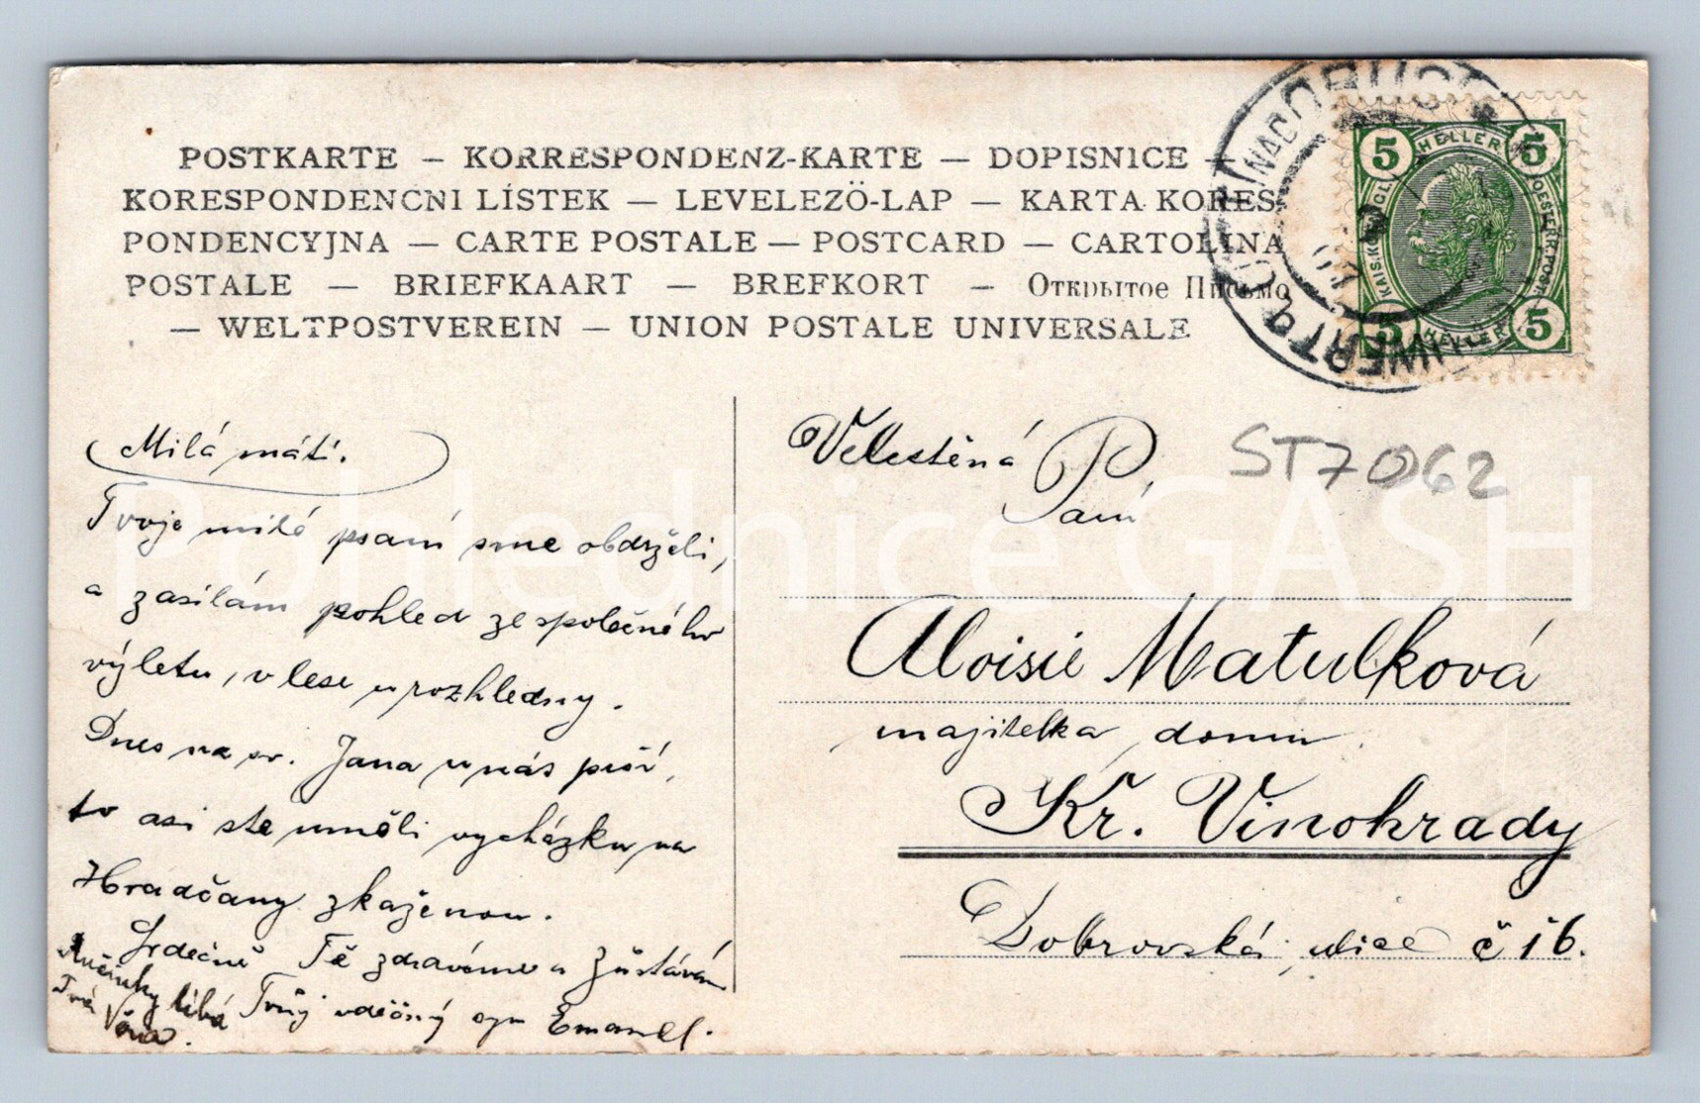 POSTKARTE — KORRESPONDENZ-KARTE — DOPISNICE —
KORESPONDENČNI LÍSTEK — LEVELEZÖ-LAP — KARTA KORES
PONDENCYJNA — CARTE POSTALE — POSTCARD — CARTOLINA
POSTALE — BRIEFKAART — BREFKORT — Открытое Письмо
— WELTPOSTVEREIN — UNION POSTALE UNIVERSALE
5 HELLER 5
KAIS. KÖNIGL. OESTERR. POST.
5 HELLER 5
Milá máti.
Tvoje milé psaní sme obdrželi,
a zasílám pohled ze společného
výletu, v lese u rozhledny.
Dnes na sv. Jana u nás prší,
to asi ste uměli vycházku na
Hradčany zkaženou.
Srdečně Tě zdravíme a zůstávám
Tvůj vděčný syn Emanuel.
Ručinky líbá
Tvá Věna.
Velectěná
Paní
ST7062
Aloisie Matulková
majitelka domu
Kř. Vinohrady
Dobrovská ulice č 16.
Pohlednice GASH